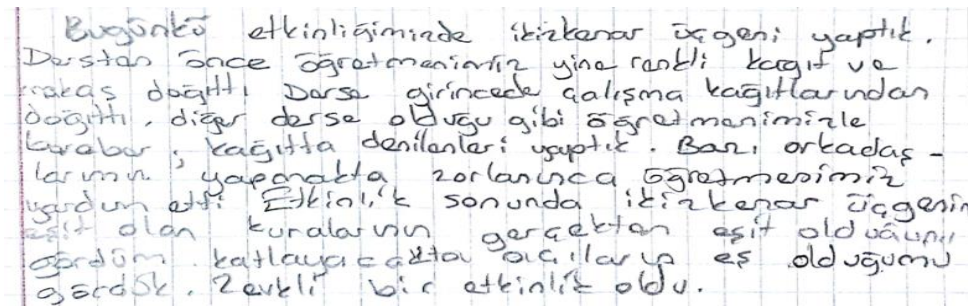 Bugünkü etkinliğimizde ikizkenar üçgeni yaptık.
Dersten önce öğretmenimiz yine renkli kağıt ve
makas dağıttı Derse girincede çalışma kağıtlarından
dağıttı. diğer derse olduğu gibi öğretmenimizle
beraber, kağıtta denilenleri yaptık. Bazı arkadaş-
larımın yapmakta zorlanınca öğretmenimiz
yardım etti Etkinlik sonunda ikizkenar üçgenin
eşit olan kuralarının gerçekten eşit olduğunu
gördüm. açıların eş olduğumu
gördük. Zevkli bir etkinlik oldu.